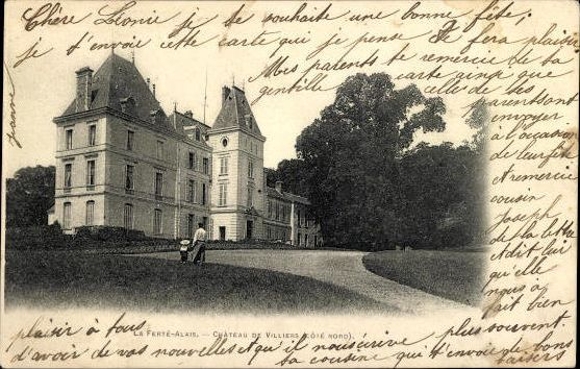 Chère Léonie je te souhaite une bonne fête,
je t'envoie cette carte qui je pense te fera plaisir
Mes parents te remercie de ta
gentille carte ainsi que
celle de ses
parents ont
envoyer
à l'occasion
de leur fête
et remercie
cousin
Joseph
de la lettre
et dit lui
qu'elle
nous à
fait bien
plaisir à tous
d'avoir de vos nouvelles et qu'il nous écrive plus souvent.
ta cousine qui t'envoie de bons
baisers
Jeanne
LA FERTÉ-ALAIS. — CHÂTEAU DE VILLIERS (CÔTÉ NORD).